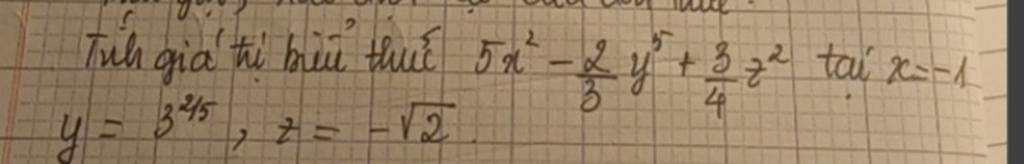 Tính giá trị biểu thức 5x² - 2/3 y⁵ + 3/4 z² tại x = -1
y = 3^{2/5}, z = -√2.